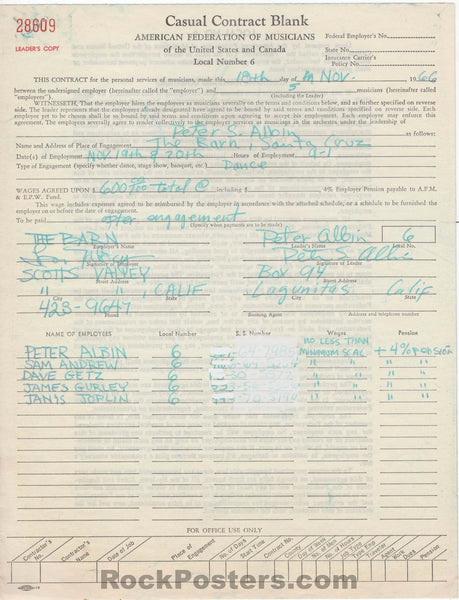 28609
LEADER'S COPY
Casual Contract Blank
AMERICAN FEDERATION OF MUSICIANS
of the United States and Canada
Local Number 6
Federal Employer's No.
State No.
Insurance Carrier's
Policy No.
THIS CONTRACT for the personal services of musicians, made this 18th day of Nov. 1966
between the undersigned employer (hereinafter called the "employer") and 5 musicians (hereinafter called
(Including the Leader)
"employees").
WITNESSETH, That the employer hires the employees as musicians severally on the terms and conditions below, and as further specified on reverse
side. The leader represents that the employees already designated have agreed to be bound by said terms and conditions specified on reverse side. Each
employee yet to be chosen shall be so bound by said terms and conditions upon agreeing to accept his employment. Each employee may enforce this
agreement. The employees severally agree to render collectively to the employer services as musicians in the orchestra under the leadership of
Peter S. Albin as follows:
Name and Address of Place of Engagement The Barn, Santa Cruz
Date(s) of Employment Nov. 19th & 20th Hours of Employment 9-1
Type of Engagement (specify whether dance, stage show, banquet, etc.) Dance
WAGES AGREED UPON $ 600.00 total @ including $ 4% Employer Pension payable to A.F.M.
& E.P.W. Fund.
This wage includes expenses agreed to be reimbursed by the employer in accordance with the attached schedule, or a schedule to be furnished the
employer on or before the date of engagement.
To be paid after engagement
(Specify when payments are to be made)
THE BARN Peter Albin 6
Employer's Name Leader's Name Local No.
Peter S. Albin
Signature of Employer Signature of Leader
SCOTTS VALLEY Box 94
Street Address Street Address
" " , CALIF Lagunitas Calif
City State City State
423-9647
Phone Booking Agent Address
NAME OF EMPLOYEES Local Number S. S. Number Wages Pension
PETER ALBIN 6 NO LESS THAN MINIMUM SCAL + 4% pension
SAM ANDREW 6 " " " "
DAVE GETZ 6 " " " "
JAMES GURLEY 6 " " " "
JANIS JOPLIN 6 " " " "
FOR OFFICE USE ONLY
Contractor's No. Contractor's Name Date of Job Place of Engagement No. of Days Start Time Contract No. County Day of Week No. of Men No. of Hours Job Type Eng. Type Traveler Agent Work Dues Pension
RockPosters.com